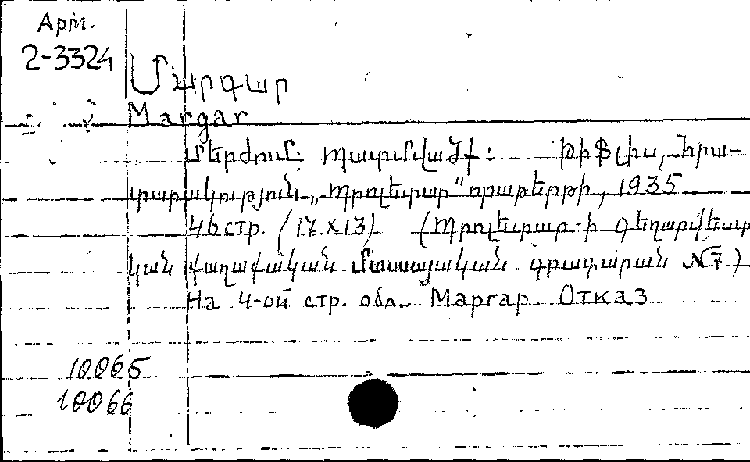 Арм.
2-3324
Մարգար
Margar
Մերժում. պատմվածք: Թիֆլիս, Հրա-
տարակություն „Պրոլետար“ օրաթերթի, 1935
46 стр. (17x13) (Պրոլետար-ի գեղարվեստ
կան քաղաքական մասսայական գրադարան №7)
На 4-ой стр. обл. Маргар Отказ
10065
10066